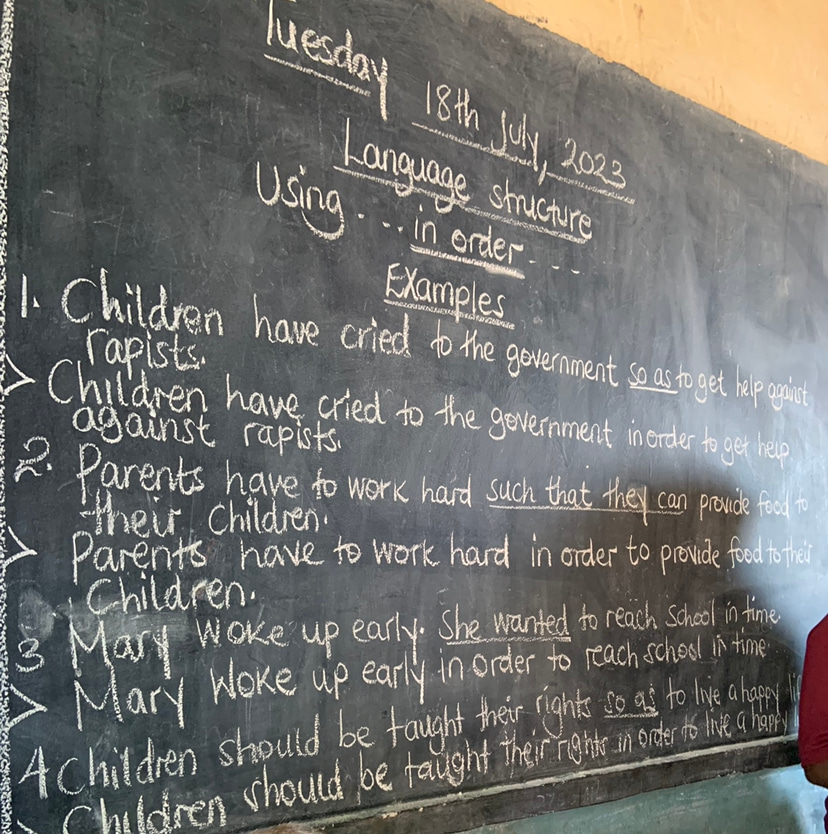 Tuesday 18th July, 2023
Language structure
Using .... in order ....
Examples
1. Children have cried to the government so as to get help against
rapists.
> Children have cried to the government in order to get help
against rapists.
2. Parents have to work hard such that they can provide food to
their children.
> Parents have to work hard in order to provide food to their
Children.
3 Mary woke up early. She wanted to reach school in time.
> Mary woke up early in order to reach school in time.
4 Children should be taught their rights so as to live a happy
> Children should be taught their rights in order to live a happy